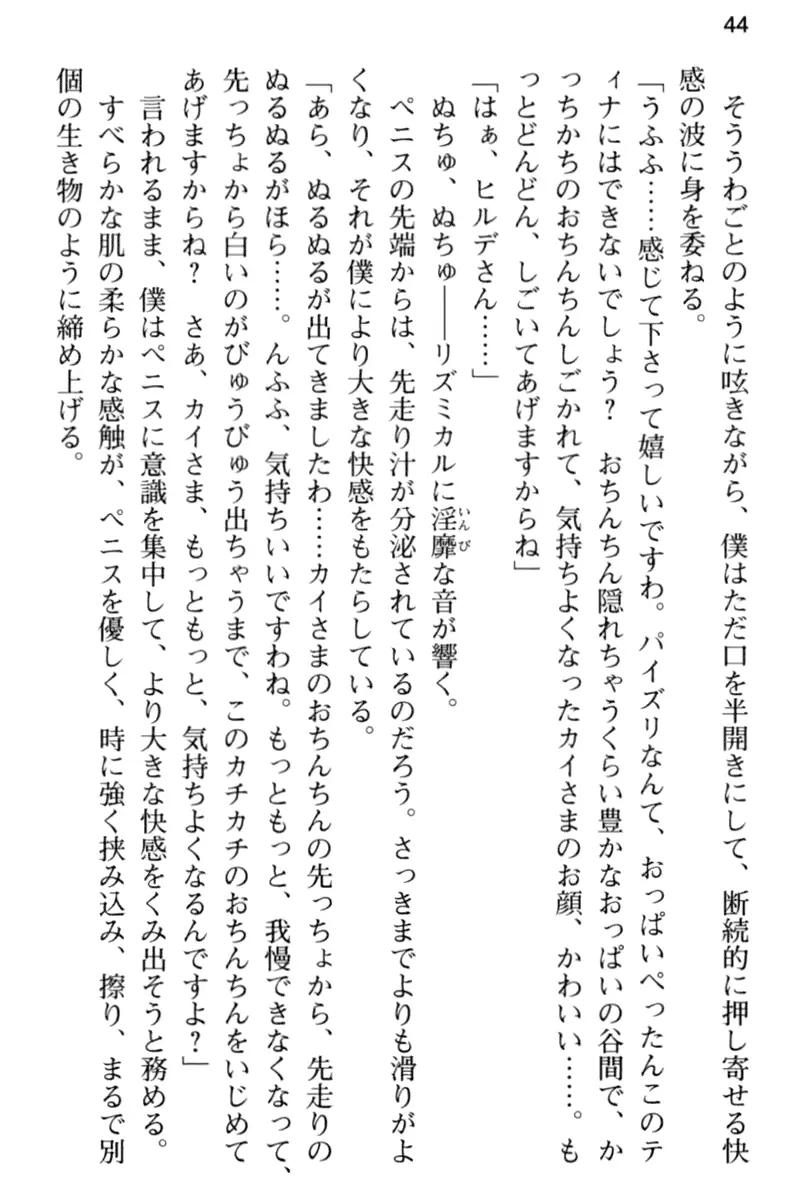 44
そううわごとのように呟きながら、僕はただ口を半開きにして、断続的に押し寄せる快
感の波に身を委ねる。
「うふふ……感じて下さって嬉しいですわ。パイズリなんて、おっぱいぺったんこのテ
ィナにはできないでしょう？　おちんちん隠れちゃうくらい豊かなおっぱいの谷間で、か
っちかちのおちんちんしごかれて、気持ちよくなったカイさまのお顔、かわいい……。も
っとどんどん、しごいてあげますからね」
「はぁ、ヒルデさん……」
ぬちゅ、ぬちゅ――リズミカルに淫靡いんびな音が響く。
ペニスの先端からは、先走り汁が分泌されているのだろう。さっきまでよりも滑りがよ
くなり、それが僕により大きな快感をもたらしている。
「あら、ぬるぬるが出てきましたわ……カイさまのおちんちんの先っちょから、先走りの
ぬるぬるがほら……。んふふ、気持ちいいですわね。もっともっと、我慢できなくなって、
先っちょから白いのがびゅうびゅう出ちゃうまで、このカチカチのおちんちんをいじめて
あげますからね？　さあ、カイさま、もっともっと、気持ちよくなるんですよ？」
言われるまま、僕はペニスに意識を集中して、より大きな快感をくみ出そうと務める。
すべらかな肌の柔らかな感触が、ペニスを優しく、時に強く挟み込み、擦り、まるで別
個の生き物のように締め上げる。